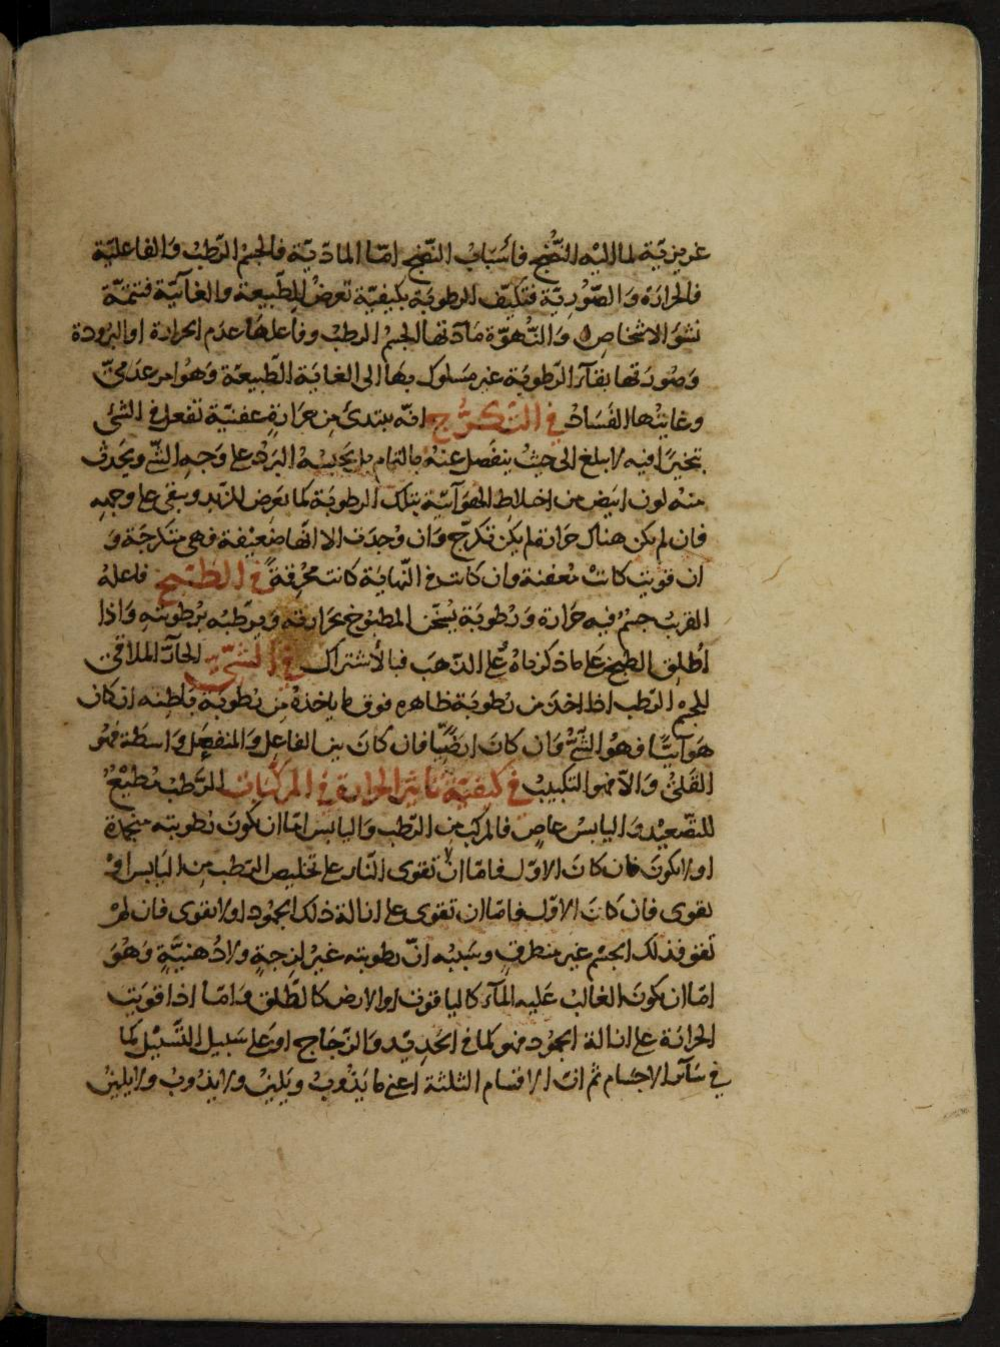 غريزيّة لما اليه النُّضْج فأسْبَابُ النّضج امّا المادّيّة فالجسْم الرّطبْ وَالفاعليّة
فالحرارَة وَالصّوْريّة فتكيّف الرطوبَة بكيفيّة تعرضُ للطّبيعة والغآئيّة فتتمّة
نشوَ الاشخاص وَالنُّهوّة مَادّتها الجسْم الرطبْ وفاعلهَا عدَم الحرارة او البرُودة
وَصُورَتها بقآء الرّطوبَة غير مسْلوك بهَا الى الغايَة الطّبيعيّة وَهُو امر عدَمىّ
وغايتُها الفسَادُ في التكرُّج انّه يبتدئ من حرَارة عفنيّة تفعل فى الشئ
تبخيرًا فيه لا يبلغ الى حيثُ ينفصل عنهُ بالتمام بل يحبسهُ البردُ على وَجه الشئ ويحدث
منهُ لون ابيَض من اختلاط الهوَآئيّة بتلك الرطوبَة كما يعَرض للزبد ويبقى على وجهِه
فان لم يكن هناك حرَارة لم يكن تكرّج وَان وُجدَت الا انّها ضعيْفة فهى متكرّجَة وَ
ان قويَت كانتْ معفنة وان كانت فى النّهايَة كانت محْرقةً في الطّبْخ فاعلهُ
القريبْ جسْمٌ فيه حرَارة وَرُطوبَة يسْخّن المطبْوخ بحرَارته وَيرطّبْه برُطوبتهِ وَاذا
أطلِق الطبْخ على ما ذكرناهُ وعلى الذّهَب فبالأشتراك في الشّيّ الحآرّ الملاقى
للجسم الرّطب اذا اخذَ من رُطوبَة ظاهره فوق ما ياخذهُ من رُطوبَة بَاطنه ان كان
هَوآئيّا فهوُ الشّيُّ وَان كانَ ارْضيًّا فان كان بين الفاعل وَالمنفعِل وَاسطة فهُو
القَلىُ وَالآ فهو التكبيبْ في كيفيّة تأثير الحرارة في المركّبات الرّطبُ مُطيْعٌ
للتّصعيْد وَاليابسْ عاصٍ فالمركّبْ من الرّطب وَاليابس امّا ان تكونَ رُطوبته منجمدة
او لا تكونَ فان كانَ الاوّل فامّا ان لا تقوى النّار على تخليص الرّطب من اليَابس اوْ
تقوى فان كانَ الاوّل فامّا ان تقوى على اسالة ذلك الجمُود او لا تقوى فان لمْ
تقو فذلك الجسْم غير منطرقٍ وسَببُه انّ رطوبته غيرْ لزجةٍ ولا دُهنيَّةٍ وَهُوَ
امّا ان يكونَ الغالبْ عَليه المآء كاليا قوت او الارض كالطّلق وَامّا اذا قويَت
الحرَارة على اسالة الجمُود فهو كما فى الحدِيْد وَالزّجَاج او على سَبيل التّسييْل كما
فى سَآئر الاجسَام ثم انّ الاقسام الثلثة اعنى ما يَذُوبْ ويَلينْ ولا يذُوبْ ولا يلينْ